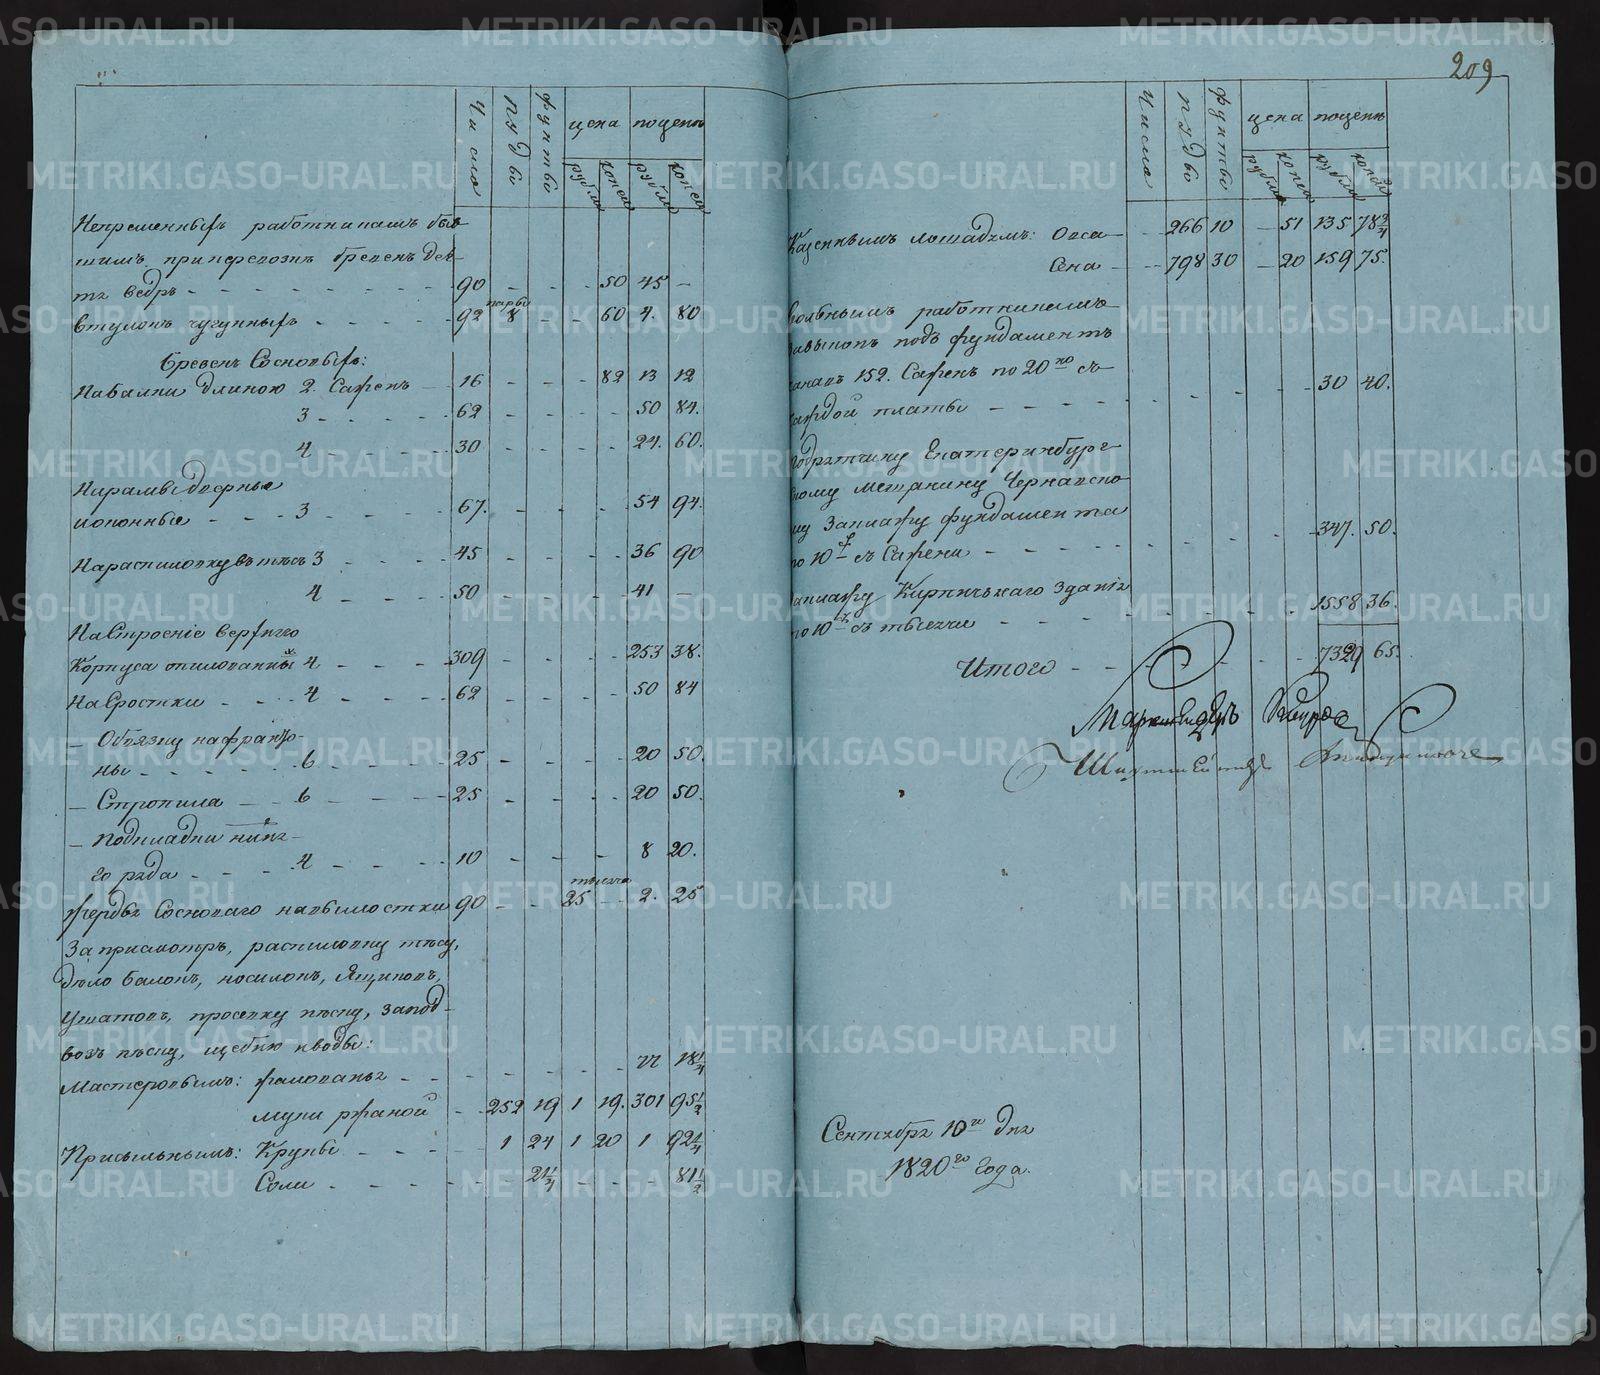 209
Число пуды фунты цена поценѣ
рубли копеи рубли копеи
Непременныхъ работникамъ быв
шимъ приперевозкѣ бревенъ дег
тя ведръ - - - 90 - - - 50 45 -
Втулокъ чугунныхъ - - - 92 пары 8 - - 60 4. 80
Бревенъ Сосновыхъ:
Набалки длиною 2. Саженъ - 16 - - - 82 13 12
3 - - - 62 - - - - 50 84.
4 - - - 30 - - - - 24. 60.
Нарамы дверные
иоконные - - - 3 - - - 67. - - - - 54 94.
Нараспиловку въ тесъ 3 - - - 45 - - - - 36 90
4 - - - 50 - - - - 41 -
На Строеніе верхняго
Корпуса опилованныхъ 4 - - - 309 - - - - 253 38.
На Сростки - - - 4 - - - 62 - - - - 50 84
- Обвязку на
ны - - - 6 - - - 25 - - - - 20 50.
- Стропила - - 6 - - - 25 - - - - 20 50.
- Подкладки нижня
го ряда - - - 4 - - - 10 - - - - 8 20.
тысяча
Жердья Сосноваго навымостки 90 - - 25 - 2. 25
За присмотръ, распиловку тесу,
дело балокъ, носилокъ, Ящиковъ,
Ушатовъ, просевку песку, запод-
возъ песку, щебню иводы:
Мастеровымъ: жалованья - - - - 77 18 1/4
муки ржаной - 252 19 1 19. 301 95 1/2
Присыльнымъ: Крупы - - - 1 24 1 20 1 92 1/4
Соли - - - - 21 1/4 - - - 81 1/2
Число пуды фунты цена поценѣ
рубли копеи рубли копеи
Казеннымъ лошадямъ: Овса - - 266 10 - 51 135 78 3/4
Сена - - - 798 30 - 20 159 75.
вольнымъ работникамъ
завыкопъ подъ фундаментъ
канавъ 152. Саженъ по 20 ко съ
каждой платы - - - - 30 40.
Подрятчику Екатеринбург
скому мещянину Чернавско
му Закладку фундамента
по 10 съ Сажени - - - - 347. 50.
Закладку Кирпичьнаго зданія
по 10 съ тысячи - - - - 1558 36.
Итого - - - 7329 65.
Маркшейдеръ
Шихтмейстеръ
Сентября 10го дня
1820го года.